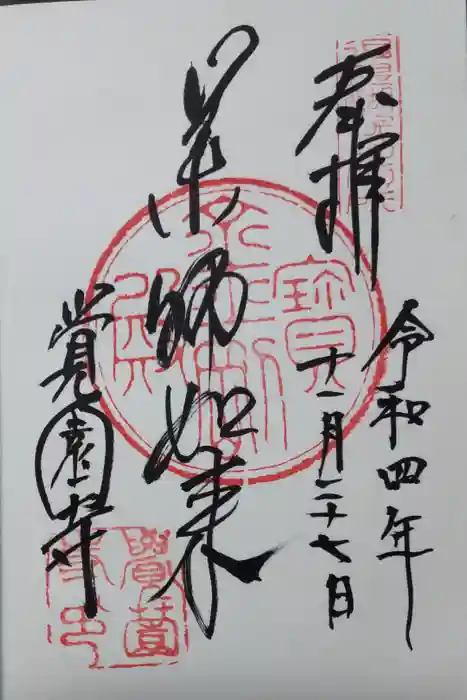 奉拝
令和四年
十一月二十七日
薬師如来
覚園寺